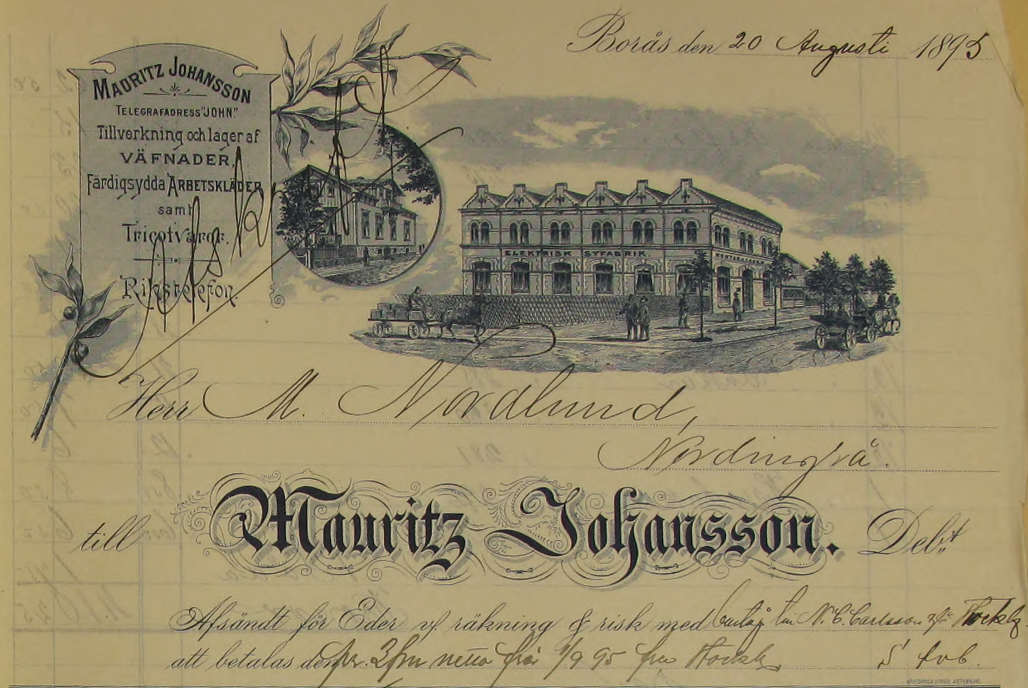 Borås den 20 Augusti 1895
MAURITZ JOHANSSON
TELEGRAFADRESS "JOHN."
Tillverkning och lager af
VÄFNADER,
Färdigsydda ARBETSKLÄDER
samt
Tricotvaror.
Rikstelefon.
ELEKTRISK SYFABRIK
Herr M. Nordlund,
Nordingrå.
till Mauritz Johansson. Debt
Afsändt för Eder v/ räkning & risk med N. C. Carlsson
att betalas den pr. 3/m netto från 1/9 95 Stockh